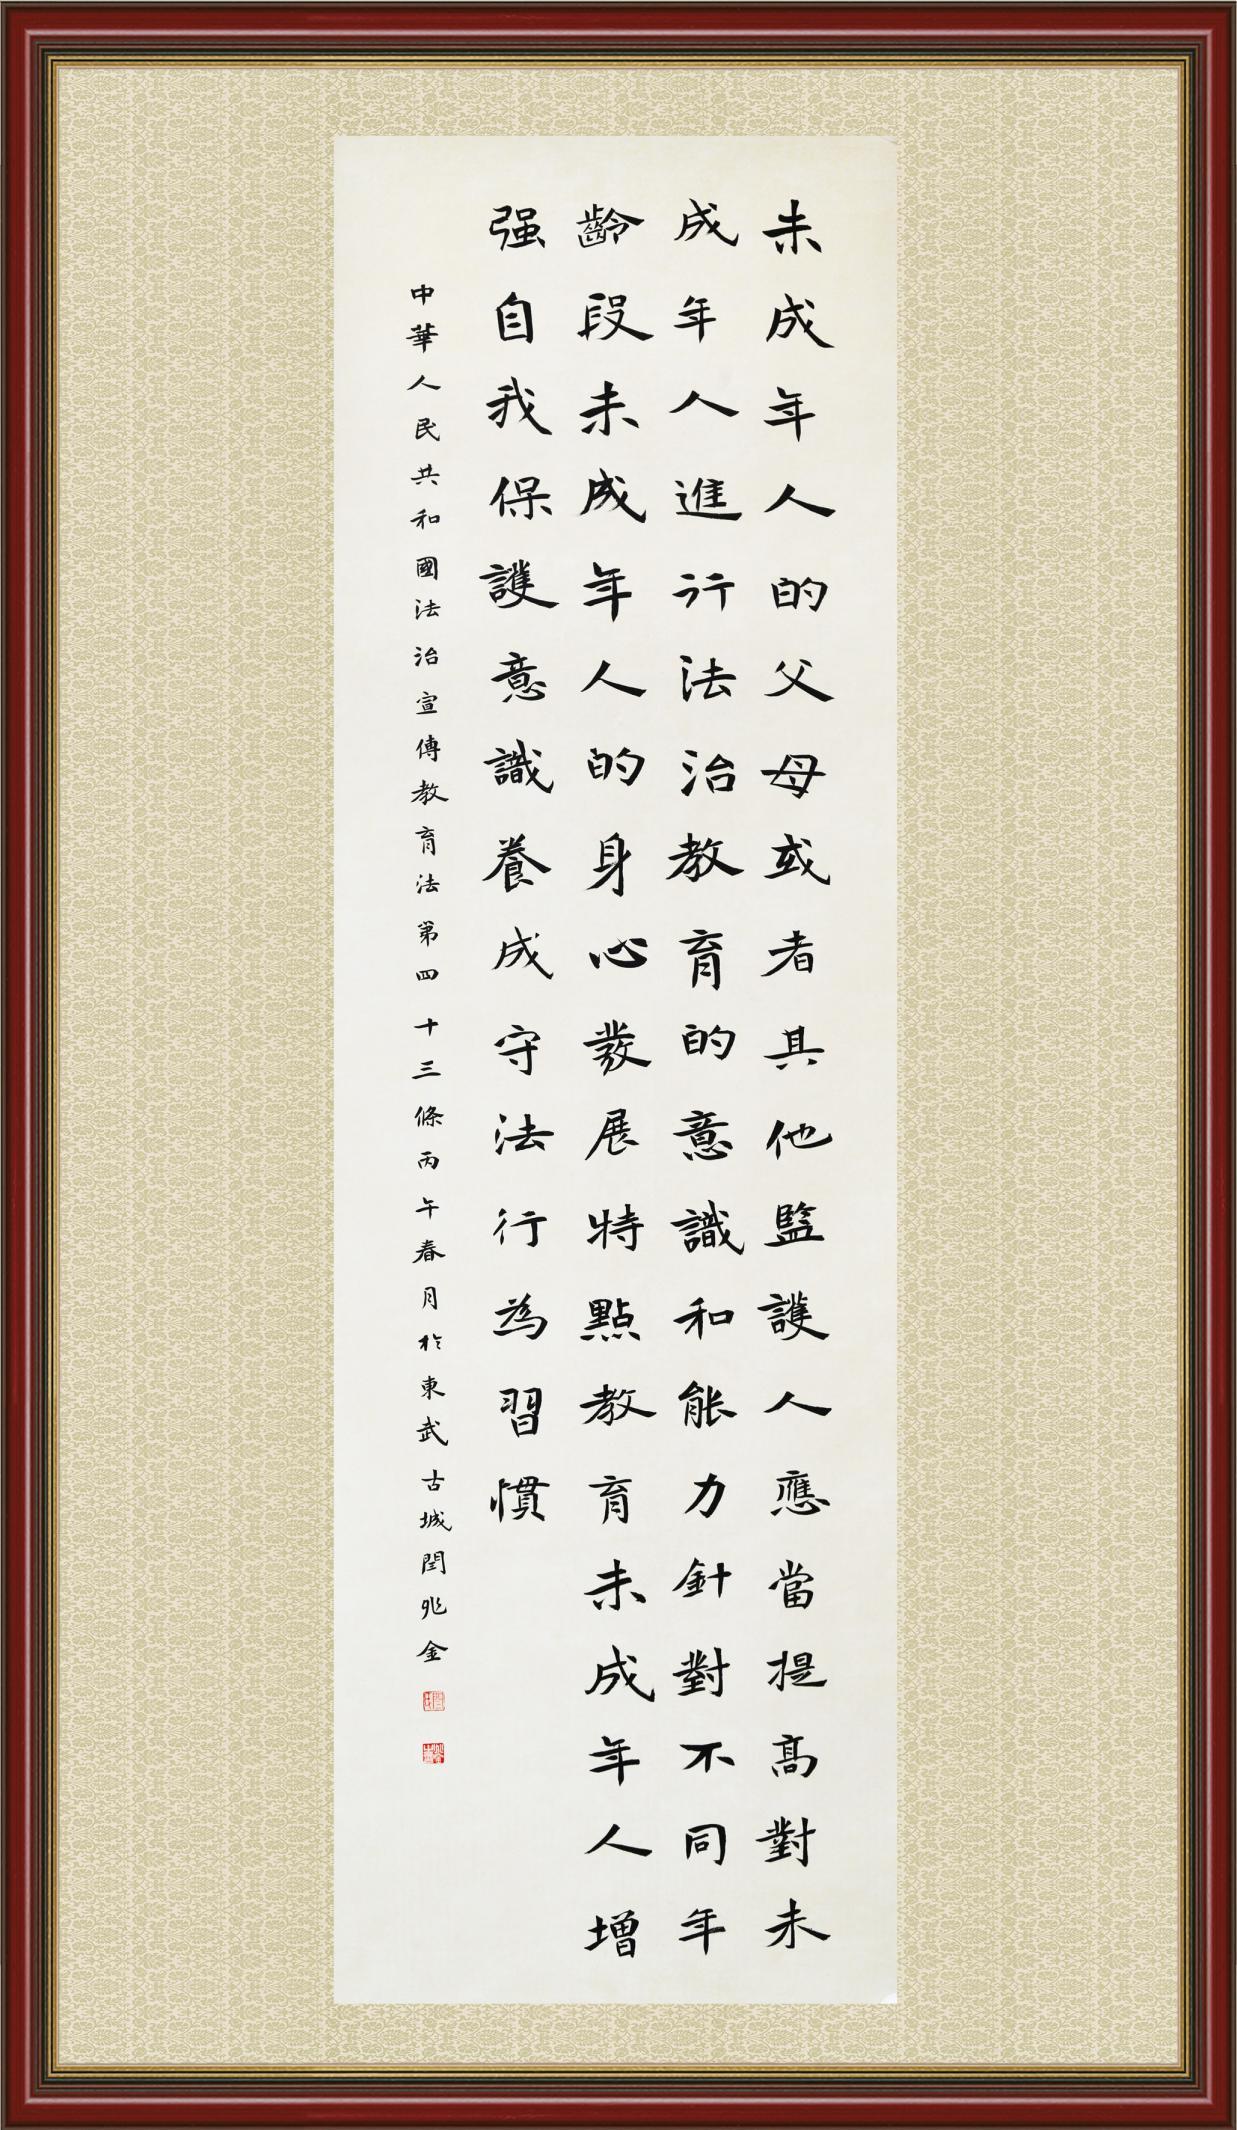 未成年人的父母或者其他監護人應當提高對未
成年人進行法治教育的意識和能力針對不同年
齡段未成年人的身心發展特點教育未成年人增
强自我保護意識養成守法行為習慣
中華人民共和國法治宣傳教育法第四十三條丙午春月於東武古城閆兆金